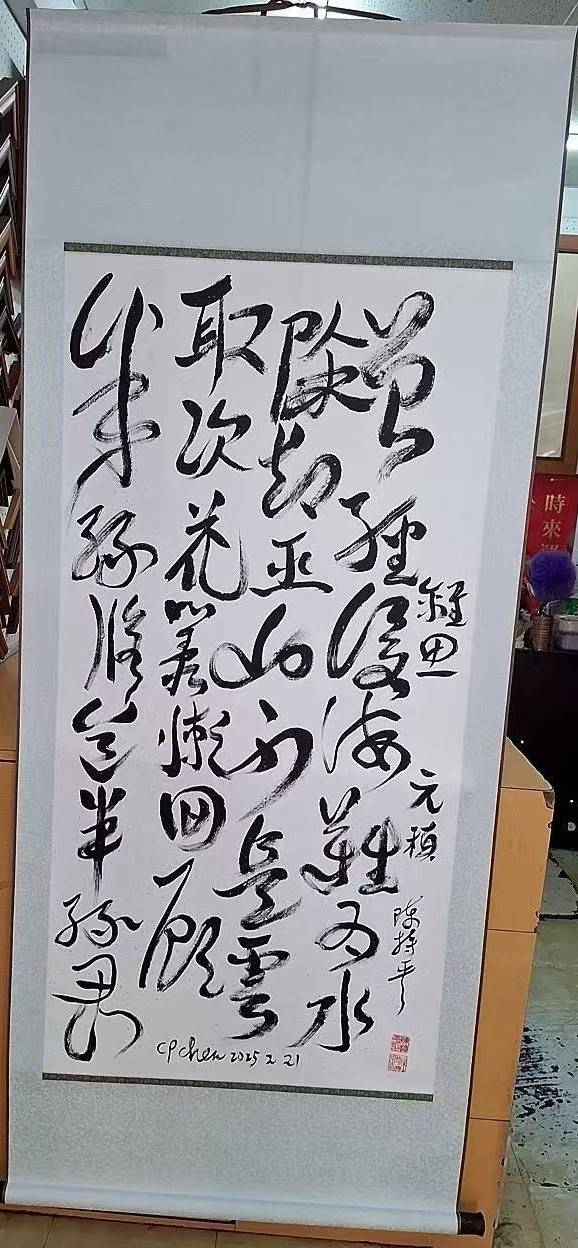 離思 元稹
曾經滄海難为水
除却巫山不是雲
取次花叢懶回顧
半緣修道半緣君
陳持平
CP Chen 2025 2 21
時來